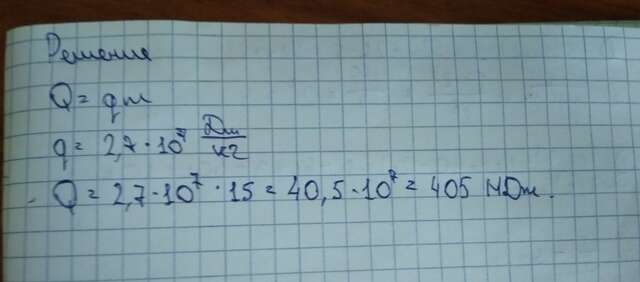 Решение
Q = qm
q = 2,7 · 10⁷ Дж/кг
Q = 2,7 · 10⁷ · 15 = 40,5 · 10⁷ = 405 МДж.